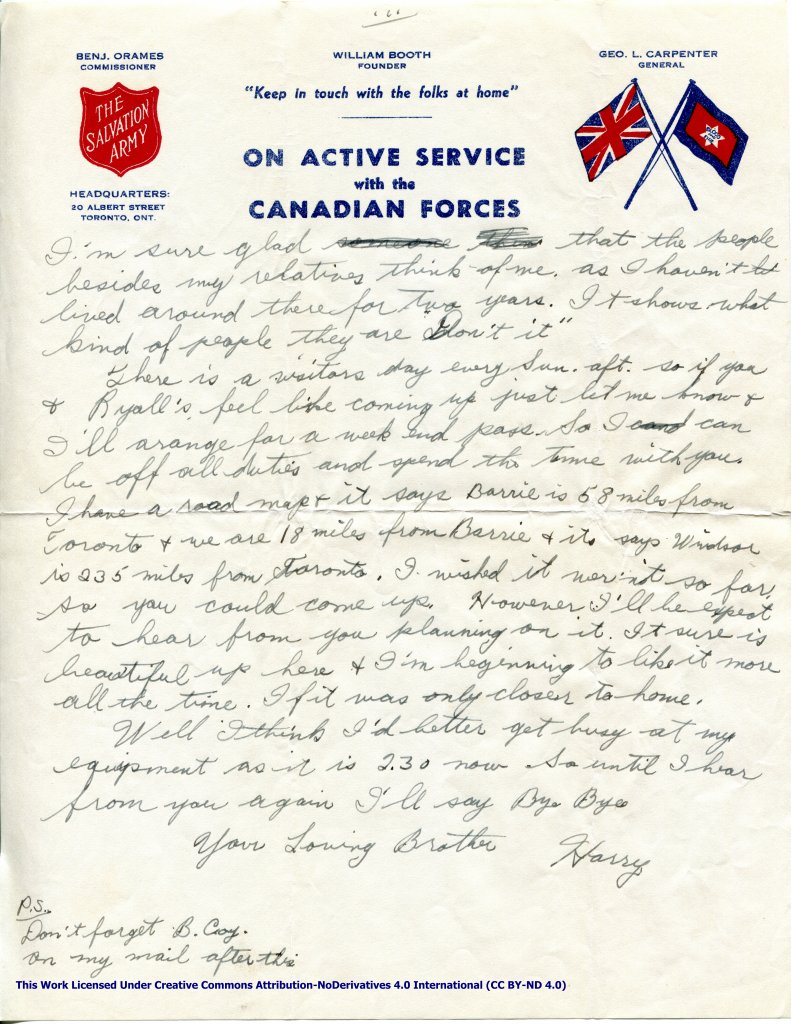 BENJ. ORAMES
COMMISSIONER
WILLIAM BOOTH
FOUNDER
GEO. L. CARPENTER
GENERAL
"Keep in touch with the folks at home"
THE
SALVATION
ARMY
ON ACTIVE SERVICE
with the
CANADIAN FORCES
HEADQUARTERS:
20 ALBERT STREET
TORONTO, ONT.
I'm sure glad someone that the people
besides my relatives think of me, as I haven't
lived around there for two years. It shows what
kind of people they are "Don't it"
There is a visitors day every Sun. aft. so if you
& Ryall's feel like coming up just let me know &
I'll arange for a week end pass. So I can
be off all duties and spend the time with you.
I have a road map & it says Barrie is 58 miles from
Toronto & we are 18 miles from Barrie & it says Windsor
is 235 miles from Toronto. I wished it wer'nt so far,
so you could come up. However I'll be expect
to hear from you planning on it. It sure is
beautiful up here & I'm beginning to like it more
all the time. If it was only closer to home.
Well I think I'd better get busy at my
equipment as it is 2.30 now So until I hear
from you again I'll say Bye Bye
Your Loving Brother Harry
P.S.
Don't forget B. Coy.
on my mail after this
This Work Licensed Under Creative Commons Attribution-NoDerivatives 4.0 International (CC BY-ND 4.0)